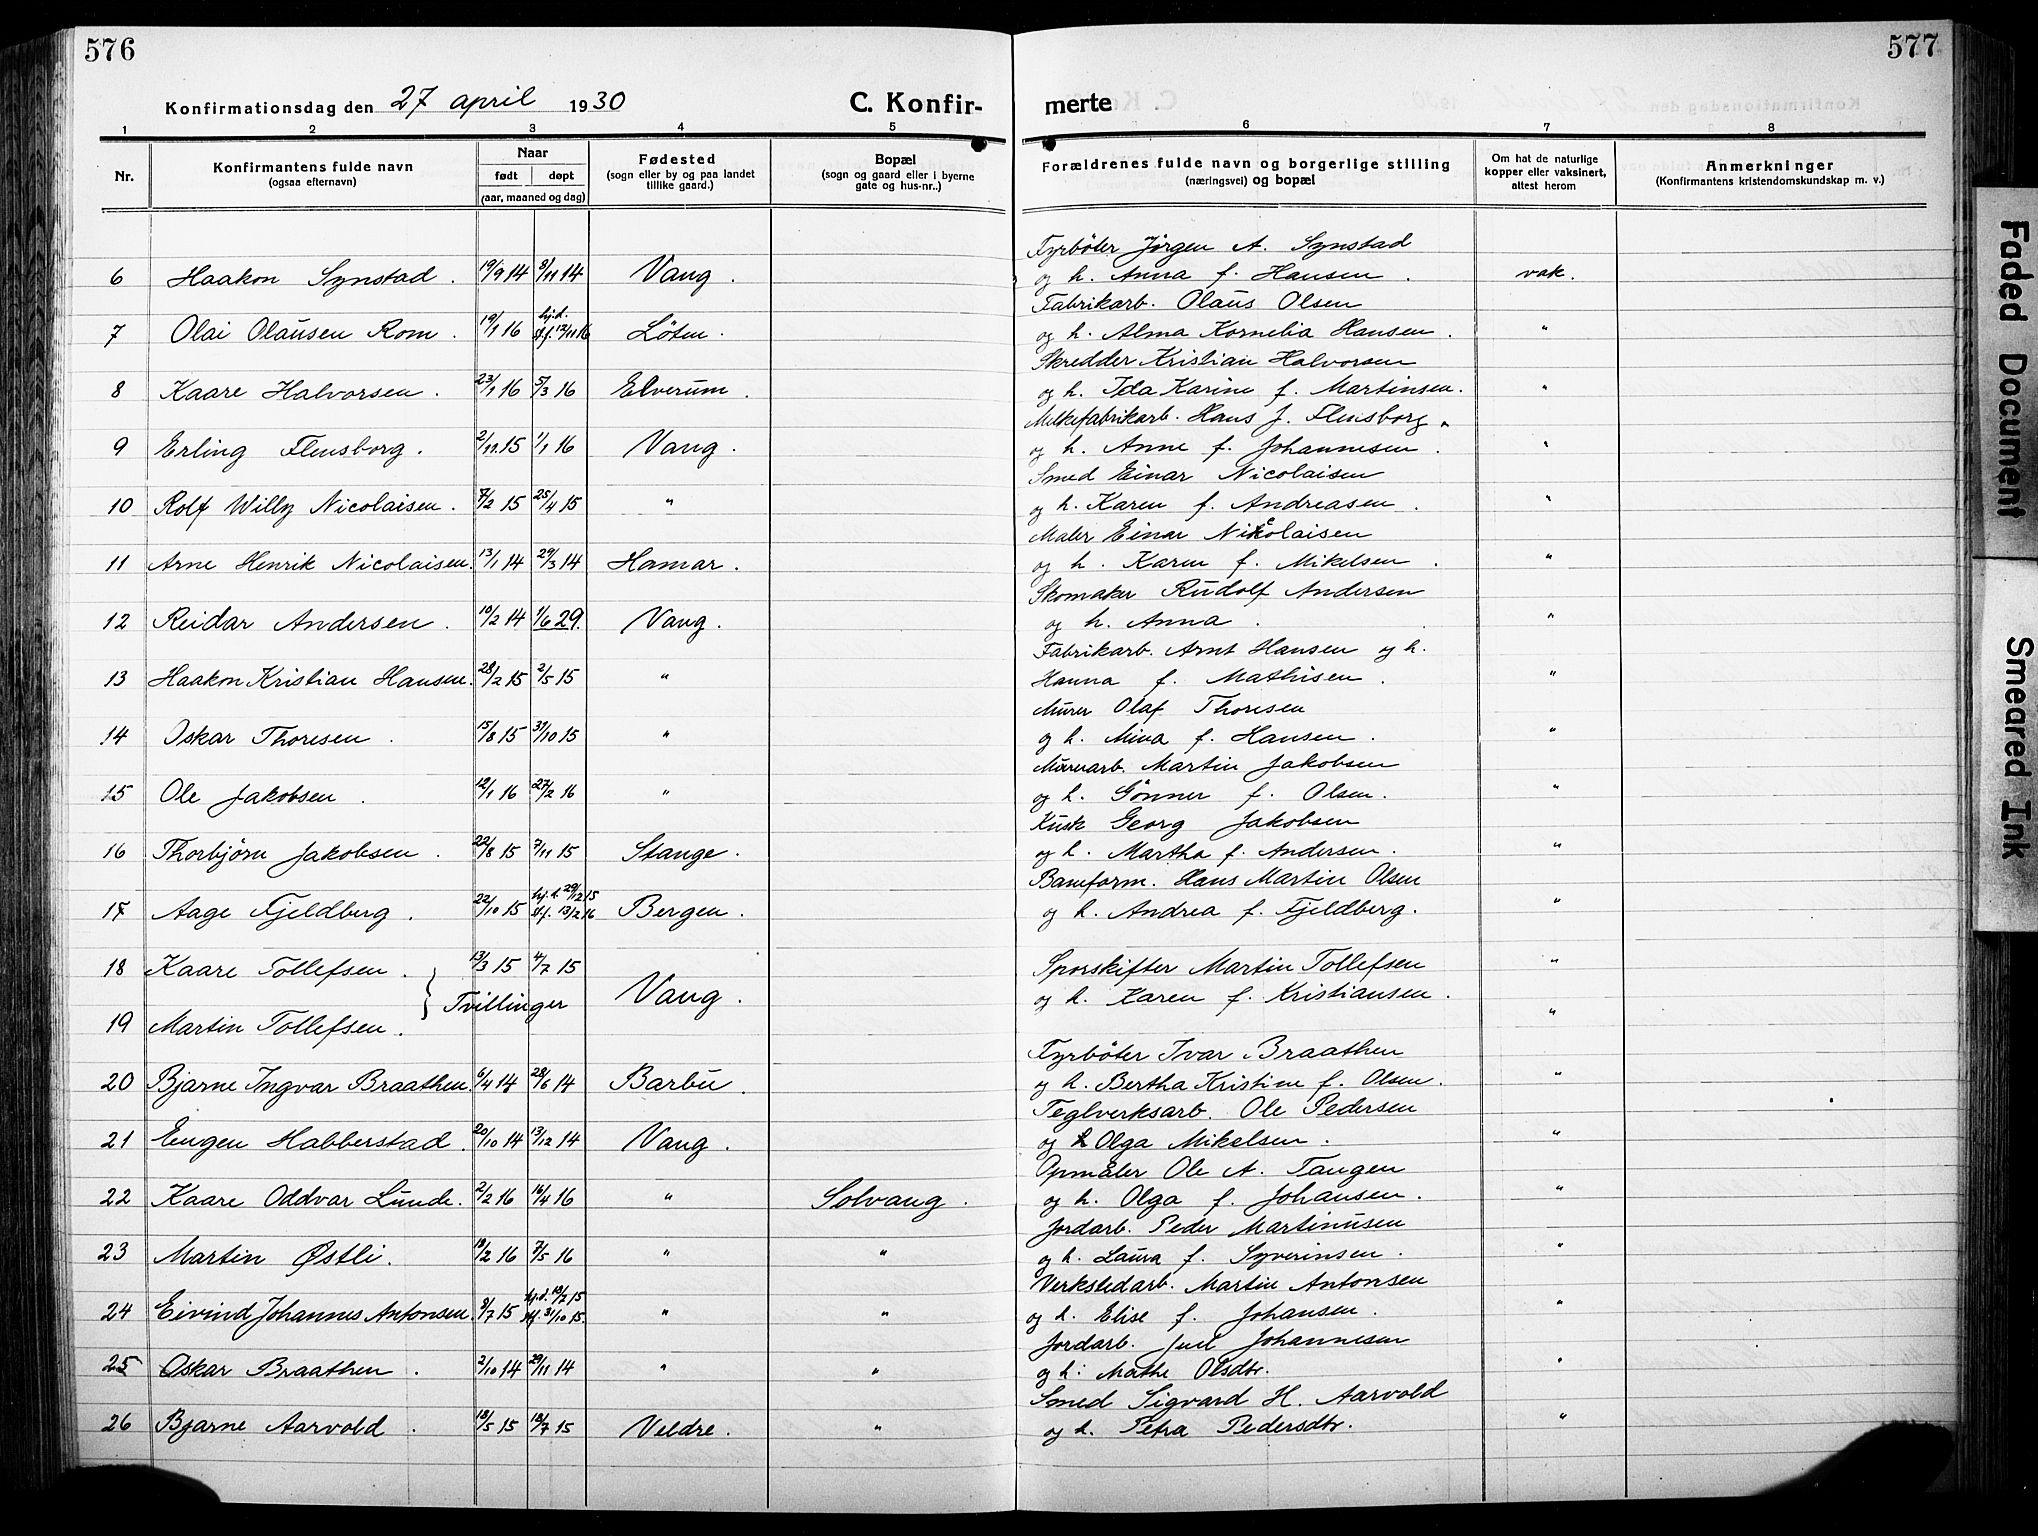 576
577
Konfirmationsdag den 27 april 1930
C. Konfir-
merte
1 2 3 4 5 6 7 8
Nr.
Konfirmantens fulde navn
(ogsaa efternavn)
Naar
født
døpt
(aar, maaned og dag)
Fødested
(sogn eller by og paa landet
tillike gaard.)
Bopæl
(sogn og gaard eller i byerne
gate og hus-nr..)
Forældrenes fulde navn og borgerlige stilling
(næringsvei) og bopæl
Om hat de naturlige
kopper eller vaksinert,
attest herom
Anmerkninger
(Konfirmantens kristendomskundskap m. v.)
Fyrböter Jørgen A. Synstad
6 Haakon Synstad. 19/9 14 8/11 14 Vang. og h. Anna f. Hansen. vak.
Fabrikarb. Olaus Olsen
7 Olai Olausen Rom. 19/1 16 hj.d. st.f. 12/11 16 Löten. og h. Alma Kornelia Hansen. "
Skredder Kristian Halvorsen
8 Kaare Halvorsen. 23/1 16 5/3 16 Elverum. og h. Ida Karine f. Martinsen. "
Melkefabrikarb. Hans J. Flensborg.
9 Erling Flensborg. 2/11. 15 1/1 16 Vang. og h. Anne f. Johannesen. "
Smed Einar Nicolaisen
10 Rolf Willy Nicolaisen. 7/2 15 25/4 15 " og h. Karen f. Andreasen. "
Maler Einar Nicolaisen
11 Arne Henrik Nicolaisen. 13/1 14 29/3 14 Hamar. og h. Karen f. Mikelsen. "
Skomaker Rudolf Andersen
12 Reidar Andersen. 10/2 14 1/6 29. Vang. og h. Anna. "
Fabrikarb. Arnt Hansen og h.
13 Haakon Kristian Hansen. 28/2 15 2/5 15 " Hanna f. Mathisen. "
Murer Olaf Thoresen
14 Oskar Thoresen. 15/8 15 31/10 15 " og h. Mina f. Hansen. "
Murerarb. Martin Jakobsen
15 Ole Jakobsen. 12/1 16 27/2 16 " og h. Gönner f. Olsen. "
Kusk Georg Jakobsen
16 Thorbjørn Jakobsen. 22/8 15 7/11 15 Stange. og h. Martha f. Andersen. "
Baneform. Hans Martin Olsen
17 Aage Fjeldberg. 22/10 15 hj.d. 29/12 15 st.f. 13/2 16 Bergen. og h. Andrea f. Fjeldberg. "
18 Kaare Tollefsen. 13/3 15 4/7 15 Sporskifter Martin Tollefsen "
} Tvillinger Vang. og h. Karen f. Kristiansen.
19 Martin Tollefsen. "
Fyrböter Ivar Braathen
20 Bjarne Ingvar Braathen. 6/4 14 28/6 14 Barbu. og h. Bertha Kristine f. Olsen. "
Teglverksarb. Ole Pedersen
21 Eugen Habberstad. 20/10 14 13/12 14 Vang. og h Olga Mikelsen. "
Opmåler Ole A. Tangen
22 Kaare Oddvar Lunde. 2/2 16 16/4 16 " Solvang. og h. Olga f. Johansen. "
Jordarb. Peder Martinusen
23 Martin Østli. 19/2 16 7/5 16 " " og h. Laura f. Syverinsen. "
Verkstedarb. Martin Antonsen
24 Eivind Johannes Antonsen. 9/7 15 hj.d. 19/7 15 st.f. 31/10 15. " " og h. Elise f. Johansen. "
Jordarb. Juel Johannesen
25 Oskar Braathen. 2/10 14 29/11 14 " " og h: Mathe Olsdtr. "
Smed Sigvard H. Aarvold
26 Bjarne Aarvold. 13/5 15 18/7 15 Veldre. " og h. Petra Pedersdtr. "
Faded Document
Smeared Ink